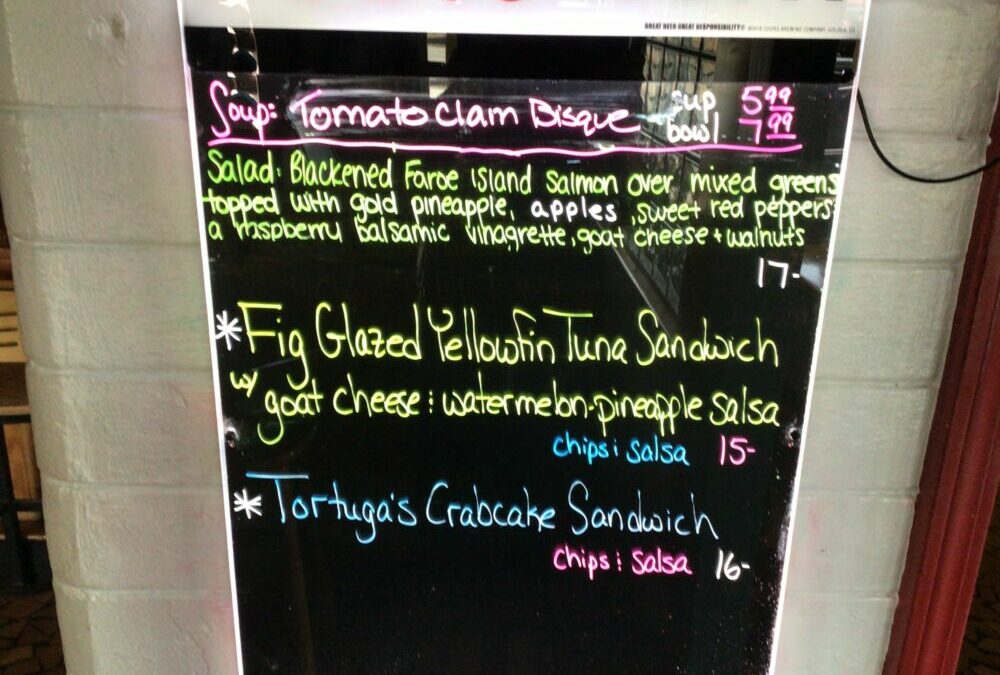 GREAT BEER GREAT RESPONSIBILITY®
Soup: Tomato Clam Bisque cup 5.99
bowl 7.99
Salad: Blackened Faroe Island Salmon over mixed greens
topped with gold pineapple, apples, sweet red peppers
a raspberry balsamic vinagrette, goat cheese + walnuts
17-
*Fig Glazed Yellowfin Tuna Sandwich
w/ goat cheese : watermelon-pineapple salsa
chips : salsa 15-
*Tortuga's Crabcake Sandwich
chips : salsa 16-